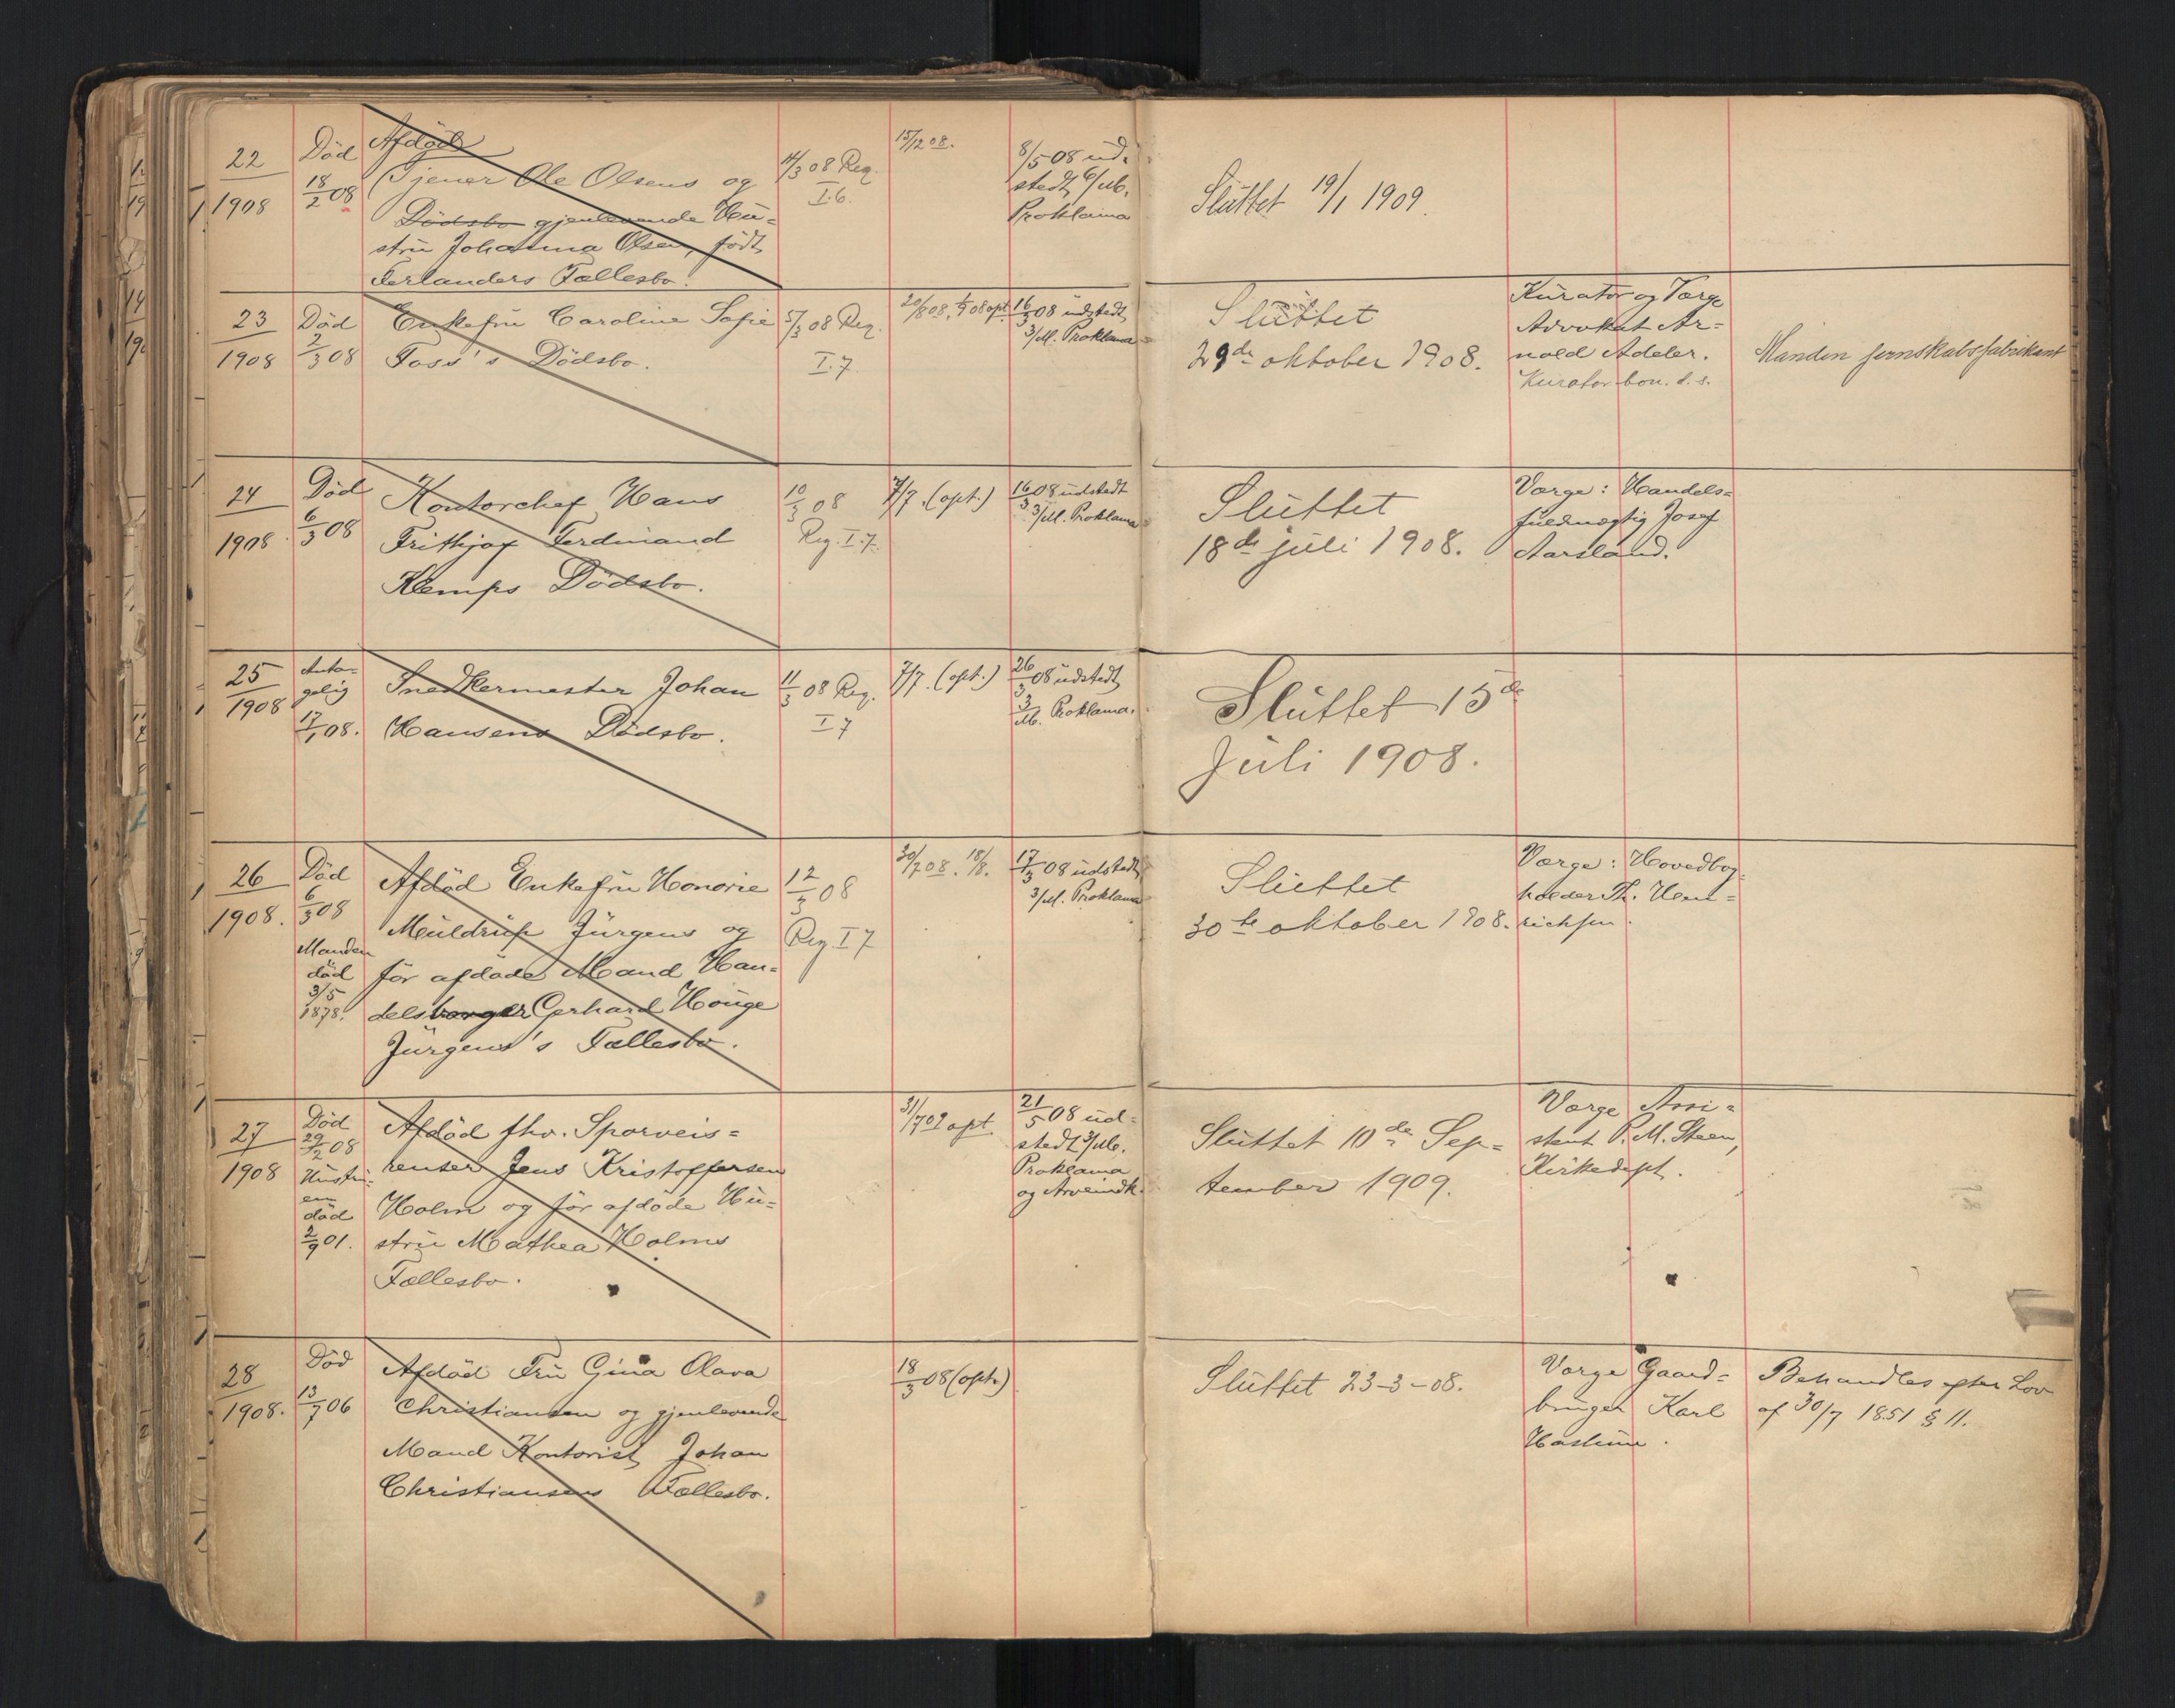 22
1908
Död
18/2 08
Afdöde
Tjener Ole Olsens og
Dödsbo gjenlevende Hu-
stru Johanna Olsen, født
Ferlanders Fællesbo.
11/3 08 Reg.
I.6.
15/12 08.
8/5 08 ud-
stedt 6/Mb.
Proklama
Sluttet 19/1 1909.
23
1908
Död
2/3 08
Enkefru Caroline Sofie
Foss's Dödsbo.
5/3 08 Reg.
I.7.
20/8 08,
16/3 08 udstedt
3/M. Proklama
Sluttet
29de oktober 1908.
Kurator og Værge
Advokat Ar-
nold Adeler.
Kurator bon. d. s.
Manden jernskabsfabrikant
24
1908
Död
6/3 08
Kontorchef Hans
Frithjof Ferdinand
Klemps Dödsbo.
10/3 08
Reg. I.7.
7/7. (opt.)
16/3 08 udstedt
3/M. Proklama
Sluttet
18de juli 1908.
Værge: Handels-
fuldmægtig Josef
Aarsland.
25
1908
Anta-
gelig
17/1 08.
Snedkermester Johan
Hansens Dödsbo.
11/3 08 Reg.
I 7
7/7. (opt.)
26/3 08 udstedt
3/Mb. Proklama.
Sluttet 15de
Juli 1908.
26
1908.
Död
6/3 08
Manden
död
3/5
1878.
Afdöd Enkefru Honorie
Muldrup Jürgens og
før afdøde Mand Han-
delsborger Gerhard Houge
Jürgens's Fællesbo.
12/3 08
Reg. I 7
30/7 08. 18/8.
17/3 08 udstedt
3/M. Proklama
Sluttet
30te oktober 1908.
Værge: Hovedbog-
holder Th. Hen-
richsen.
27
1908
Död
29/2 08
Hustru-
en
död
2/9 01.
Afdöd fhv. Sporveis-
renser Jens Kristoffersen
Holm og før afdøde Hu-
stru Mathea Holms
Fællesbo.
31/7 09 opt.
21/5 08 ud-
stedt 3/Mb.
Proklama
og Arveindk.
Sluttet 10de Sep-
tember 1909.
Værge Assi-
stent P. M. Steen,
Kirkedept.
28
1908.
Död
13/7 06
Afdöd Fru Gina Olava
Christiansen og gjenlevende
Mand Kontorist Johan
Christiansens Fællesbo.
18/3 08 (opt.)
Sluttet 23-3-08.
Værge Gaard-
bruger Karl
Behandles efter Lov
af 30/7 1851 § 11.